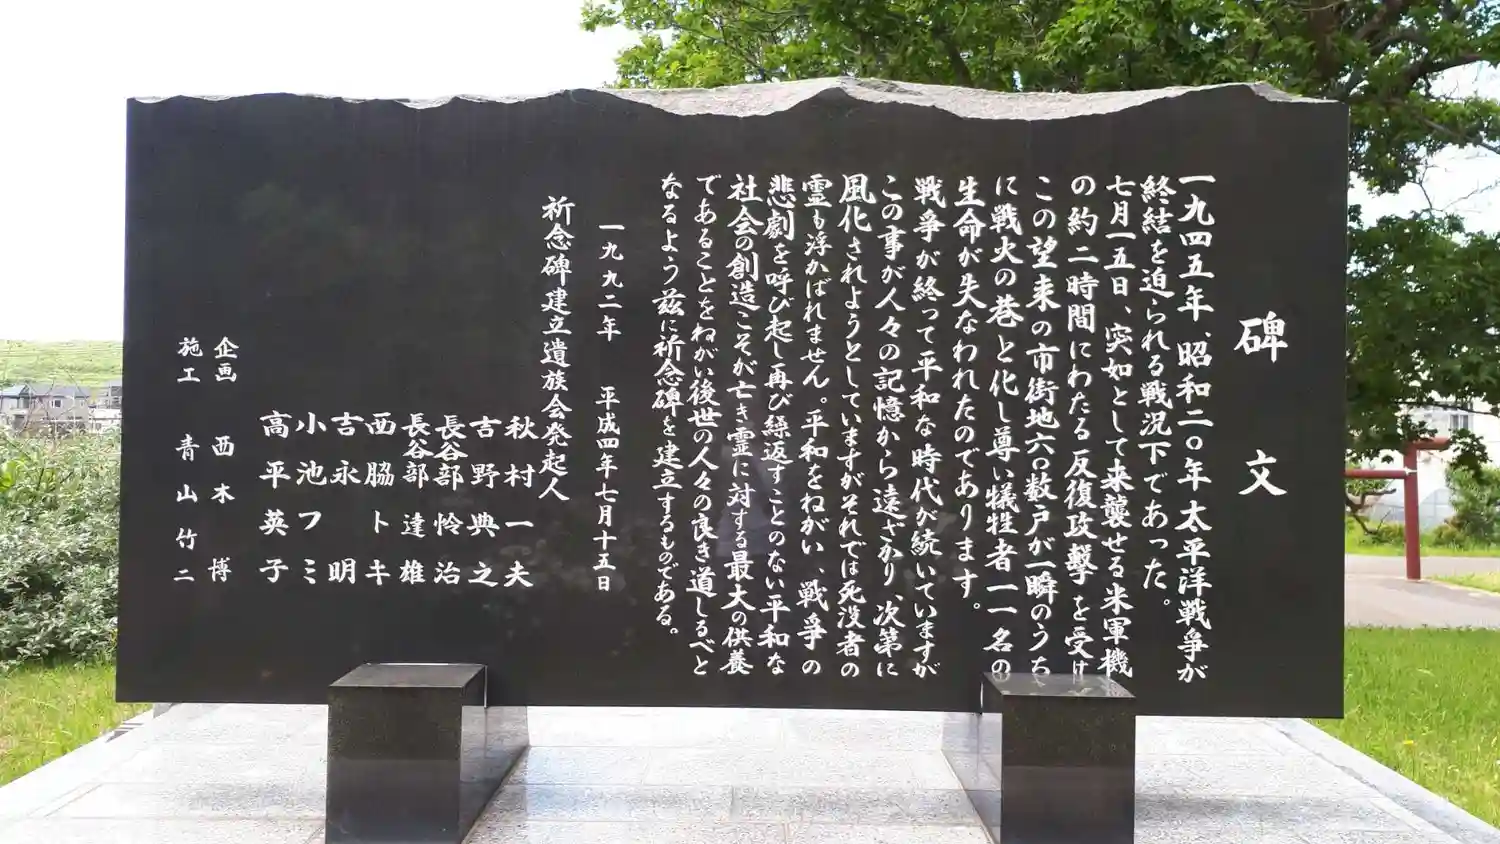 碑文
一九四五年、昭和二〇年太平洋戦争が
終結を迫られる戦況下であった。
七月一五日、突如として来襲せる米軍機
の約二時間にわたる反復攻撃を受け
この望来の市街地六〇数戸が一瞬のうち
に戦火の巷と化し尊い犠牲者一一名の
生命が失なわれたのであります。
戦争が終って平和な時代が続いていますが
この事が人々の記憶から遠ざかり、次第に
風化されようとしていますがそれでは死没者の
霊も浮かばれません。平和をねがい、戦争の
悲劇を呼び起し再び繰返すことのない平和な
社会の創造こそが亡き霊に対する最大の供養
であることをねがい後世の人々の良き道しるべと
なるよう茲に祈念碑を建立するものである。
一九九二年 平成四年七月十五日
祈念碑建立遺族会発起人
秋村一夫
吉野典之
長谷部怜治
長谷部達雄
西脇トキ
吉永明
小池フミ
高平英子
企画 西木博
施工 青山竹二